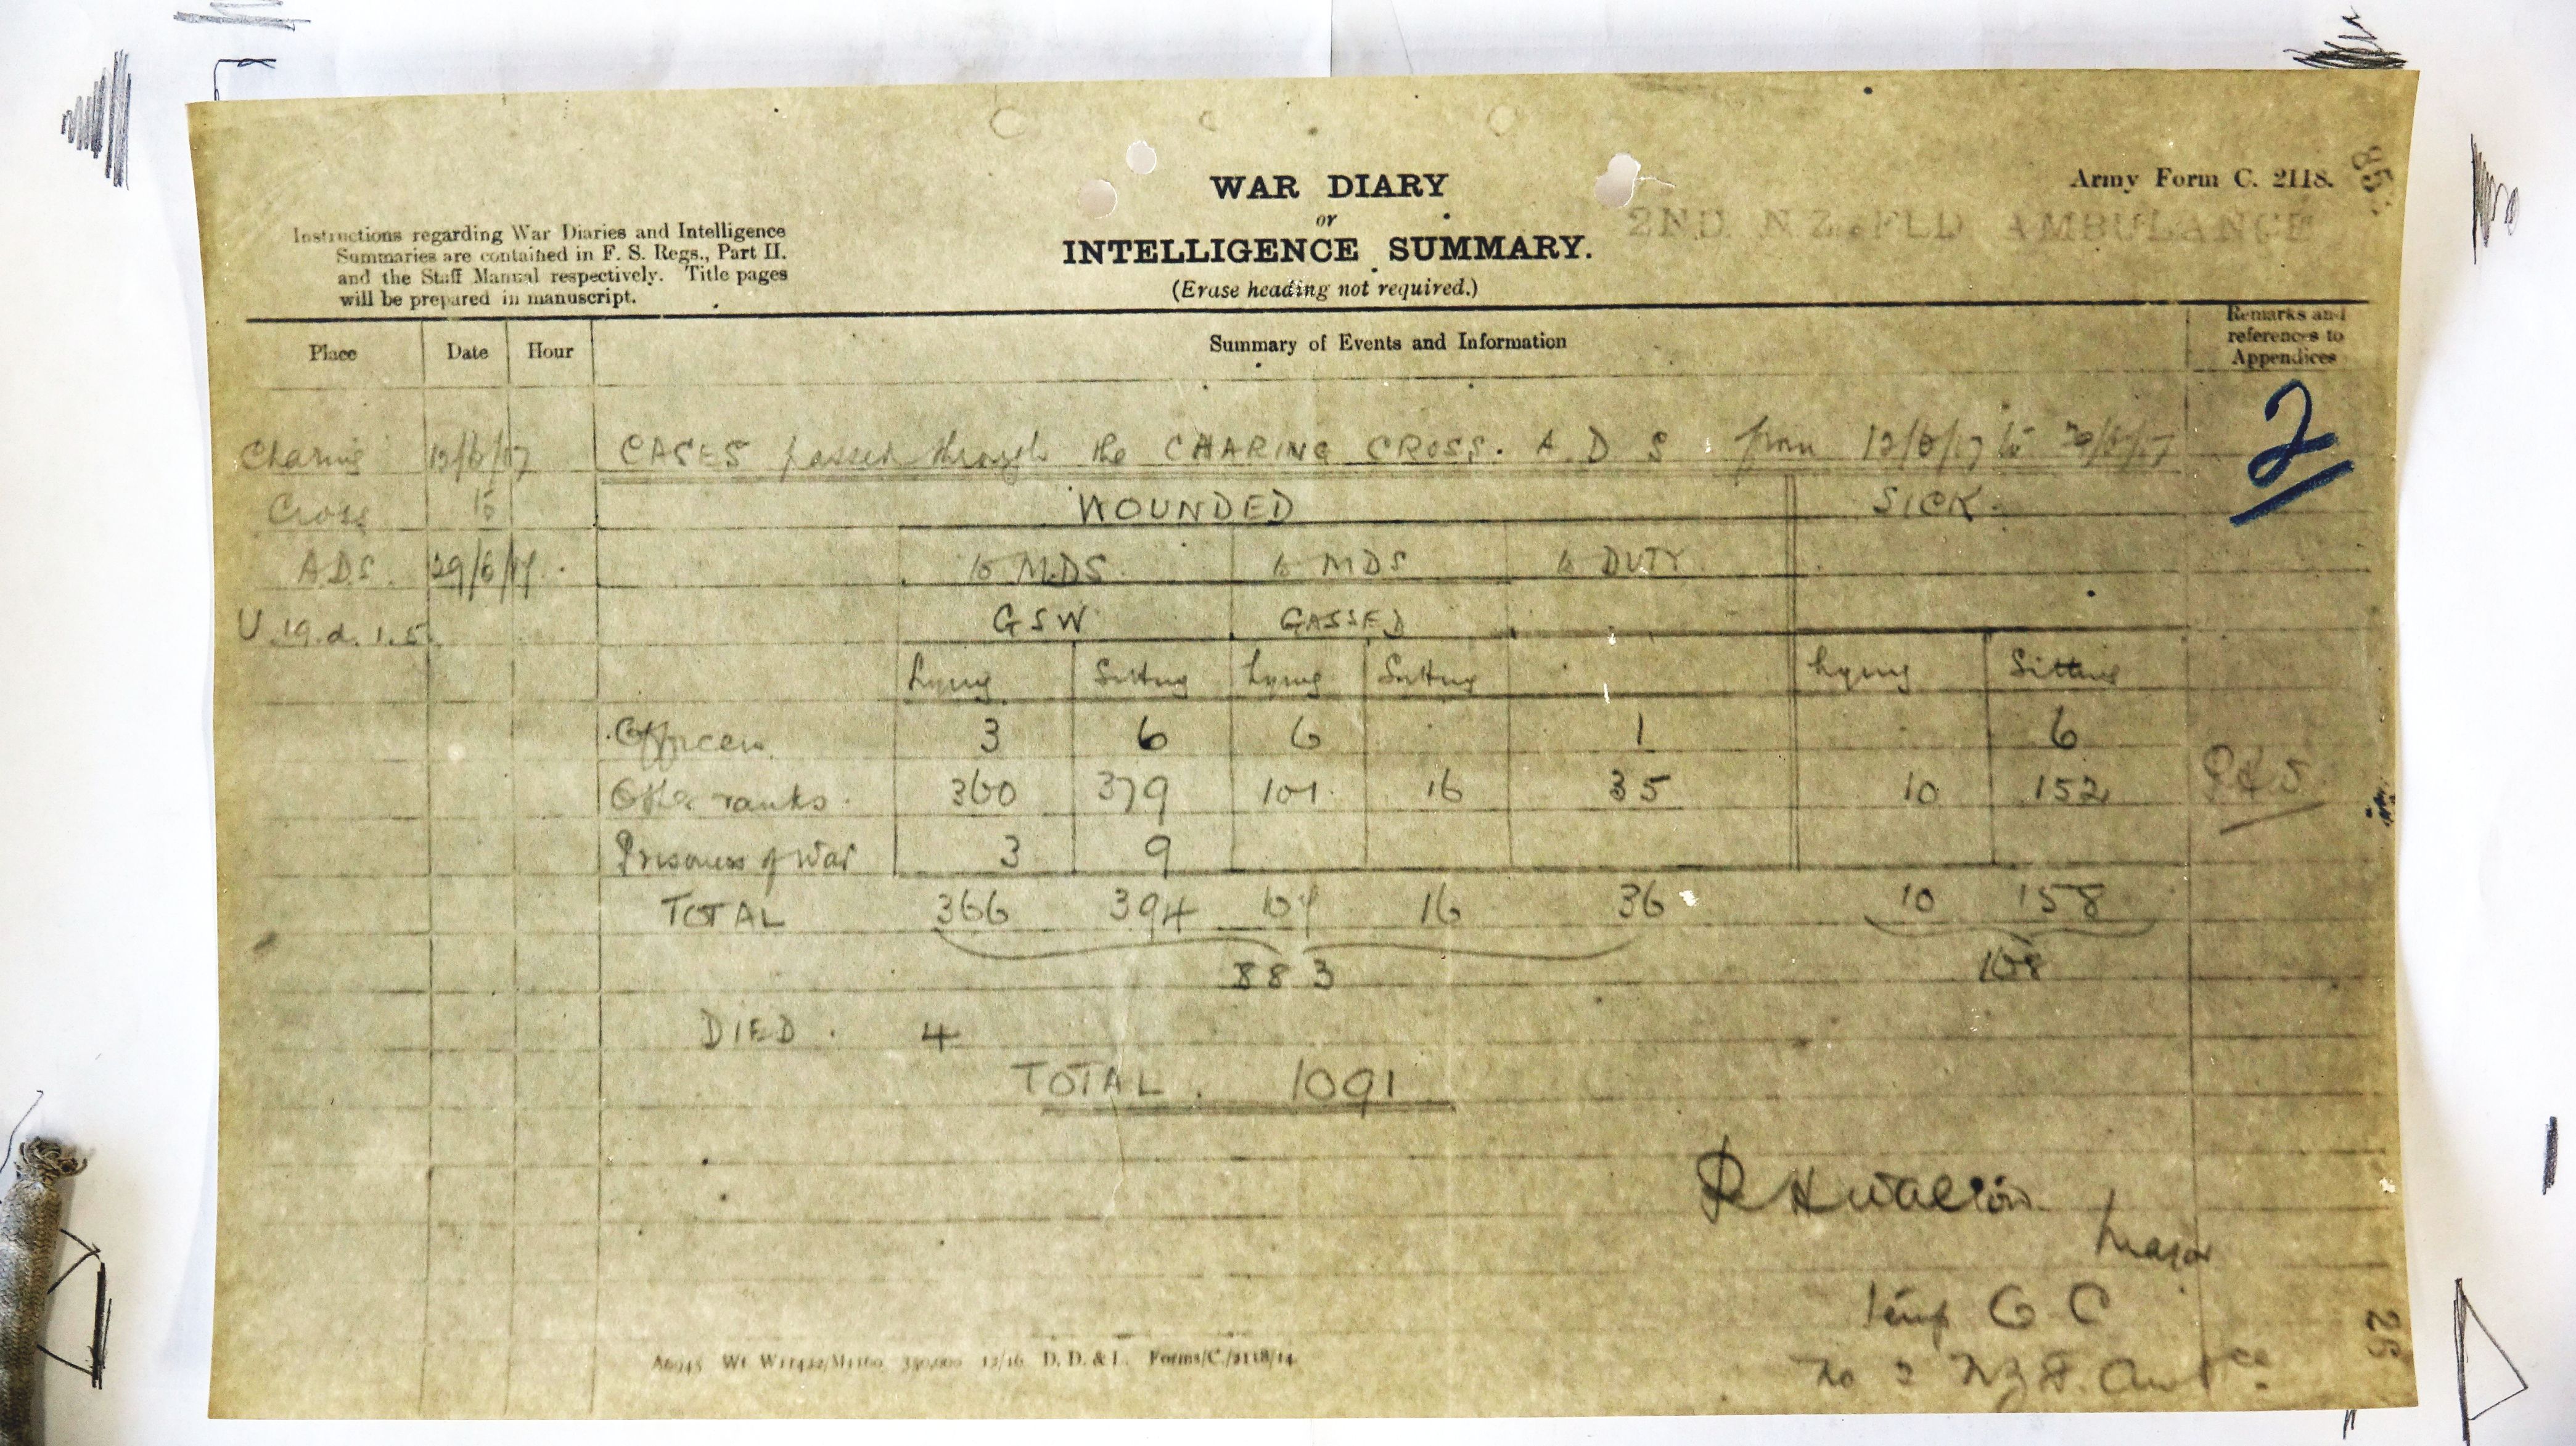 Army Form C. 2118.
85
WAR DIARY
or
INTELLIGENCE SUMMARY.
(Erase heading not required.)
2ND N Z. FLD AMBULANCE
Instructions regarding War Diaries and Intelligence
Summaries are contained in F. S. Regs., Part II.
and the Staff Manual respectively. Title pages
will be prepared in manuscript.
Place Date Hour Summary of Events and Information Remarks and references to Appendices
2
Charing 12/6/17 CASES passed through the CHARING CROSS. A D S from 12/6/17 to
Cross to WOUNDED SICK.
A.D.S. 29/6/17. to MDS to MDS to DUTY
U 19.d.1.5. GSW GASSED
Lying Sitting Lying Sitting Lying Sitting
Officers 3 6 6 1 6
Other ranks. 360 379 101 16 35 10 152
Prisoners of War 3 9
TOTAL 366 394 107 16 36 10 158
883 168
DIED. 4
TOTAL. 1091
Major
Temp O C
No 2 N Z F. Amb ce
26
D. D. & L. Forms/C./2118/14.